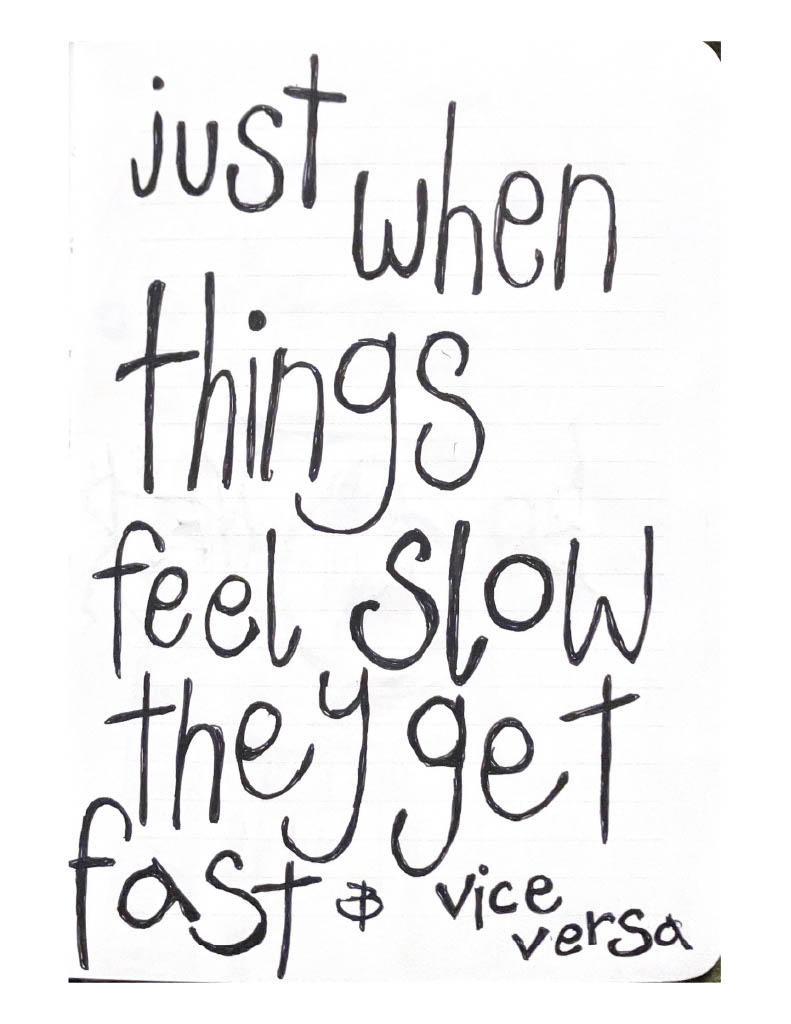 just when
things
feel slow
they get
fast & vice
versa